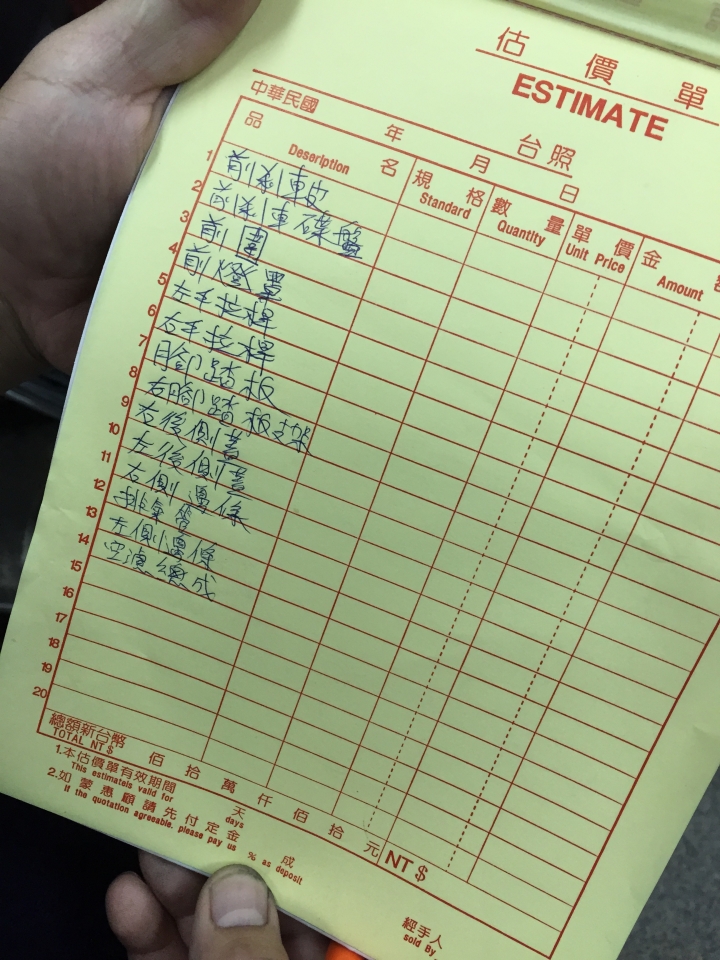 估價單
ESTIMATE
台照
中華民國 年 月 日
品名 規格 數量 單價 金
Desoription Standard Quantity Unit Price Amount
1 前剎車皮
2 前剎車碟盤
3 前圍
4 前燈罩
5 左手拉桿
6 右手拉桿
7 腳踏板
8 右腳踏板支架
9 右後側蓋
10 左後側蓋
11 右側邊條
12 排氣管
13 左側邊條
14 空濾總成
15
16
17
18
19
20
總額新台幣 佰拾萬仟佰拾元 NT $
TOTAL NT $
1.本估價單有效期間 天
This estimateis valid for days
2.如蒙惠顧請先付定金 成
If the quotation agreeable, please pay us % as deposit
經手人
sold By